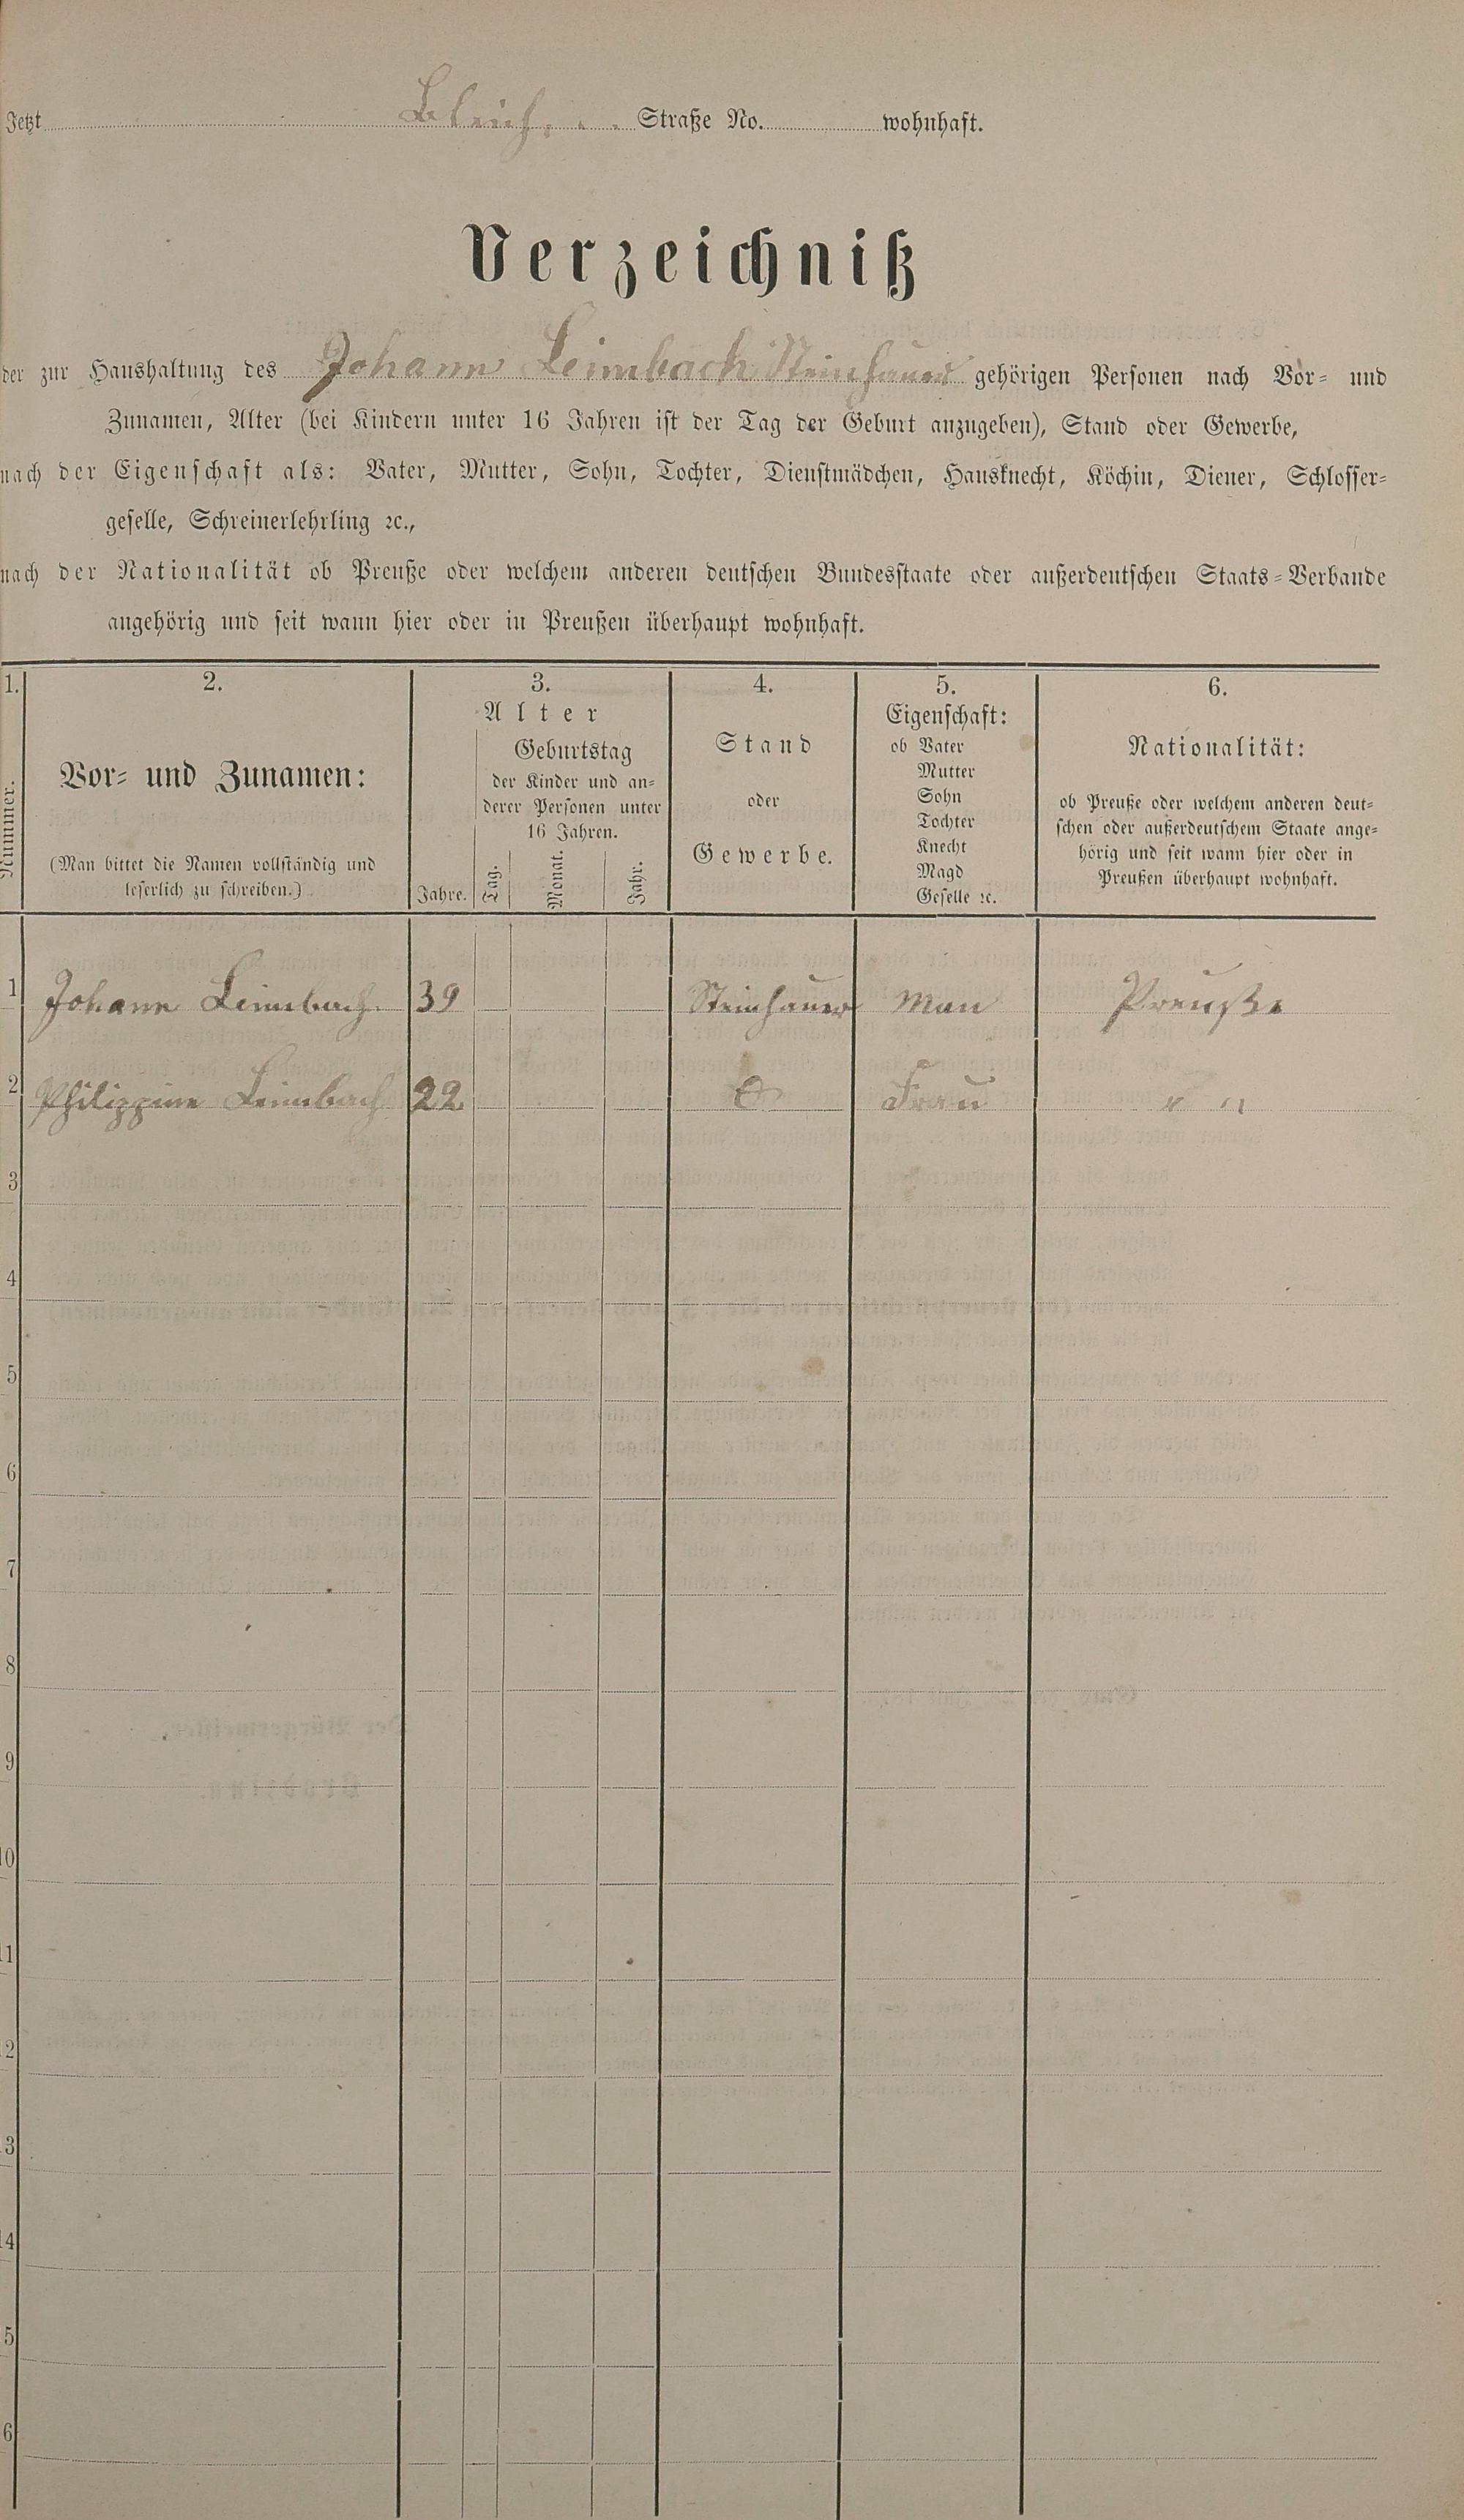 Jetzt Bleich . . Straße No. wohnhaft.
Verzeichniß
der zur Haushaltung des Johann Leimbach Steinhauer gehörigen Personen nach Vor- und
Zunamen, Alter (bei Kindern unter 16 Jahren ist der Tag der Geburt anzugeben), Stand oder Gewerbe,
nach der Eigenschaft als: Vater, Mutter, Sohn, Tochter, Dienstmädchen, Hausknecht, Köchin, Diener, Schlosser-
geselle, Schreinerlehrling ꝛc.,
nach der Nationalität ob Preuße oder welchem anderen deutschen Bundesstaate oder außerdeutschen Staats-Verbande
angehörig und seit wann hier oder in Preußen überhaupt wohnhaft.
1.
Nummer.
2.
Vor- und Zunamen:
(Man bittet die Namen vollständig und
leserlich zu schreiben.)
3.
Alter
Jahre.
Geburtstag
der Kinder und an-
derer Personen unter
16 Jahren.
Tag.
Monat.
Jahr.
4.
Stand
oder
Gewerbe.
5.
Eigenschaft:
ob Vater
Mutter
Sohn
Tochter
Knecht
Magd
Geselle ꝛc.
6.
Nationalität:
ob Preuße oder welchem anderen deut-
schen oder außerdeutschem Staate ange-
hörig und seit wann hier oder in
Preußen überhaupt wohnhaft.
1 Johann Leimbach 39 Steinhauer Man Preuße
2 Philippine Leimbach 22 Frau " "
3
4
5
6
7
8
9
10
11
2
3
14
5
6